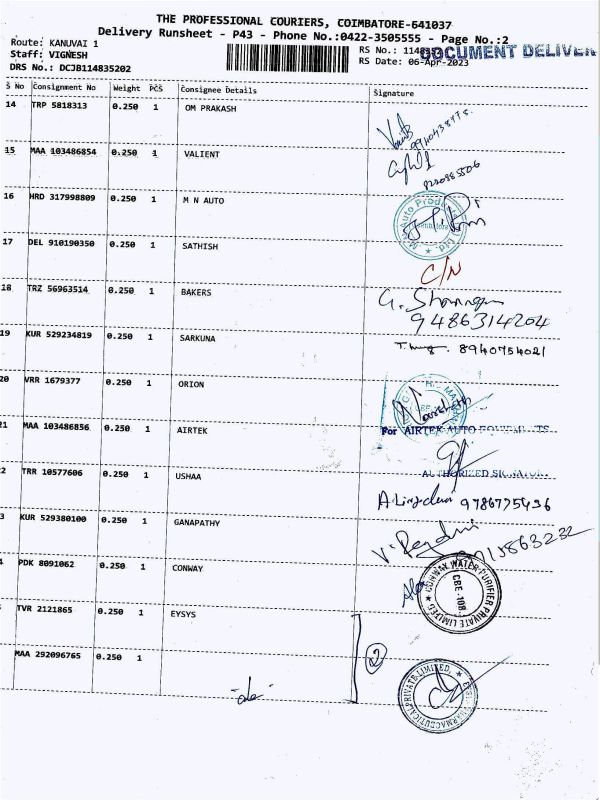 THE PROFESSIONAL COURIERS, COIMBATORE-641037
Delivery Runsheet - P43 - Phone No.:0422-3505555 - Page No.:2
Route: KANUVAI 1
Staff: VIGNESH
DRS No.: DCJB114835202
RS No.:
DOCUMENT DELIVER
RS Date: 06-Apr-2023
S No Consignment No Weight PCS Consignee Details Signature
14 TRP 5818313 0.250 1 OM PRAKASH
15 MAA 103486854 0.250 1 VALIENT
16 HRD 317998809 0.250 1 M N AUTO
17 DEL 910190350 0.250 1 SATHISH
C/N
18 TRZ 56963514 0.250 1 BAKERS
9486314204
19 KUR 529234819 0.250 1 SARKUNA
8940754021
20 VRR 1679377 0.250 1 ORION
21 MAA 103486856 0.250 1 AIRTEK
For AIRTEK AUTO
AUTHORIZED
2 TRR 10577606 0.250 1 USHAA
9786775436
3 KUR 529380100 0.250 1 GANAPATHY
4 PDK 8091062 0.250 1 CONWAY
CONWAY WATER PURIFIER PRIVATE LIMITED
CBE-108.
TVR 2121865 0.250 1 EYSYS
MAA 292096765 0.250 1
2
PHARMACEUTICAL PRIVATE LIMITED